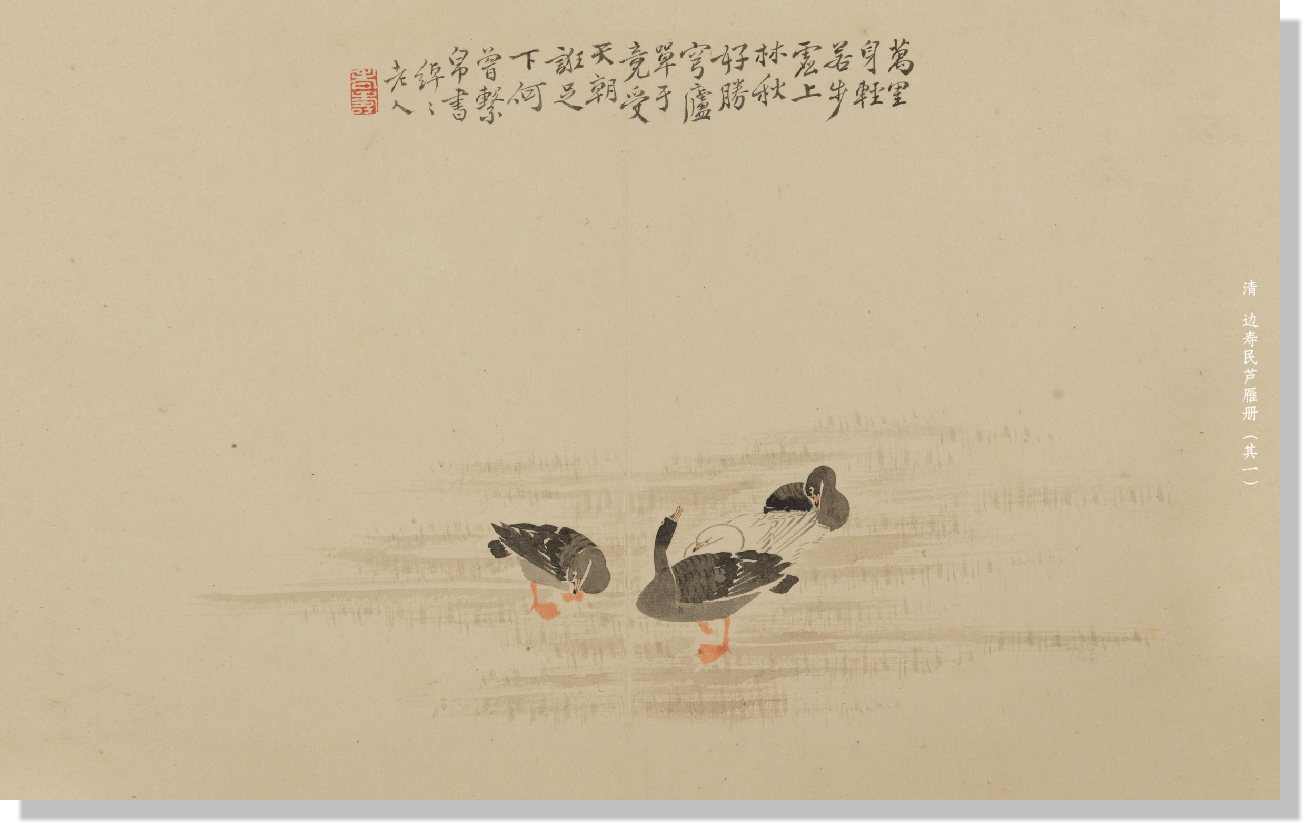 萬里
身輕
若步
虛上
林秋
好勝
穹廬
單于
竟受
天朝
誑足
下何
曾繫
帛書
綽〻
老人
清 边寿民芦雁册（其一）